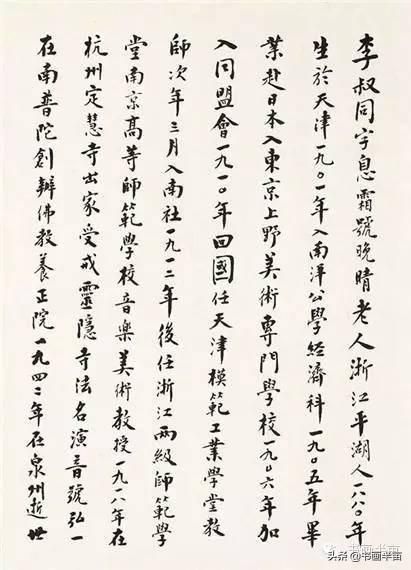 李叔同字息霜號晚晴老人浙江平湖人一八八〇年
生於天津一九〇一年入南洋公學經濟科一九〇五年畢
業赴日本入東京上野美術專門學校一九〇六年加
入同盟會一九一〇年回國任天津模範工業學堂教
師次年三月入南社一九一二年後任浙江兩級師範學
堂南京高等師範學校音樂美術教授一九一八年在
杭州定慧寺出家受戒靈隱寺法名演音號弘一
在南普陀創辦佛教養正院一九四二年在泉州逝世
书画半亩
头条 @书画半亩